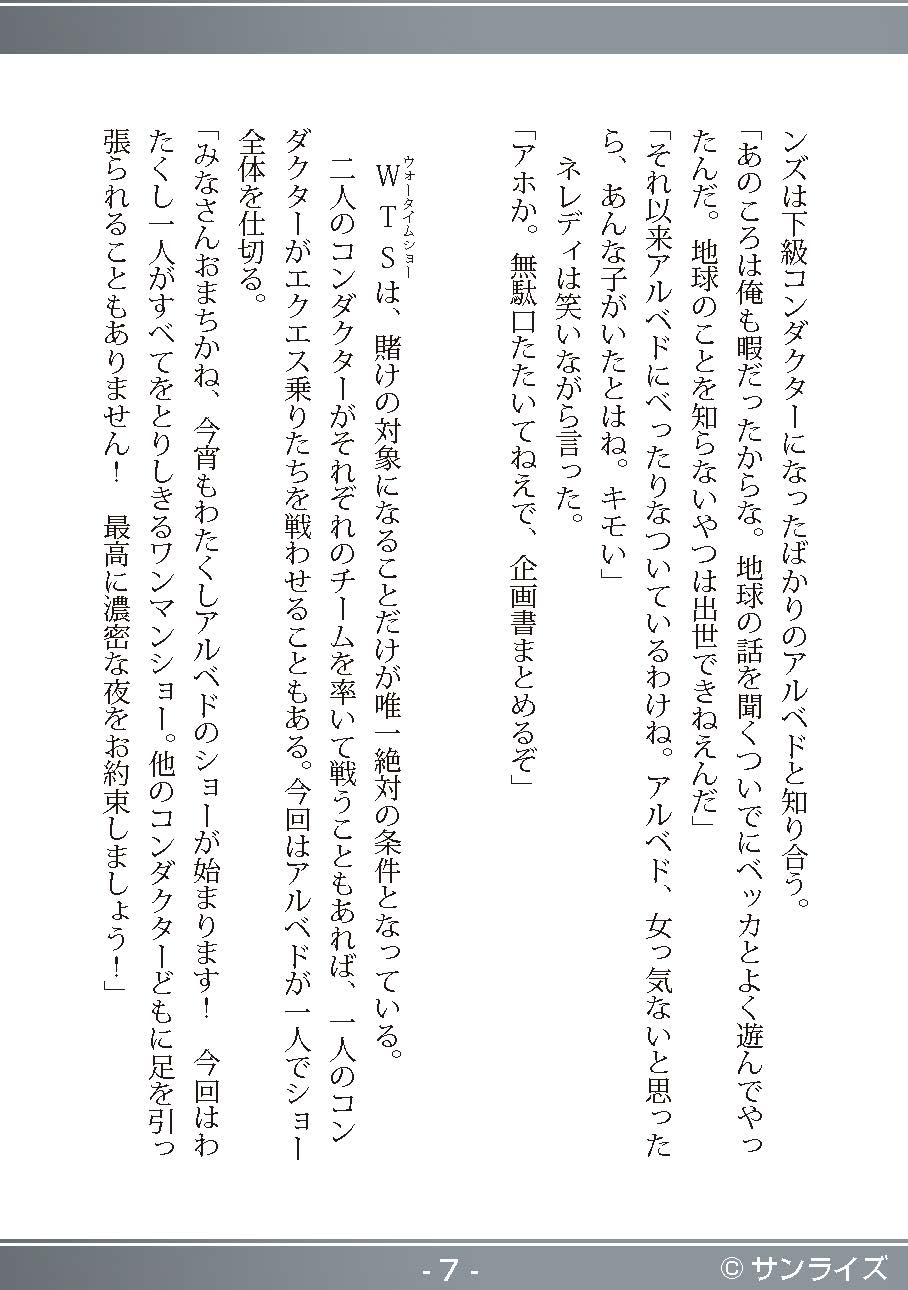 ンズは下級コンダクターになったばかりのアルベドと知り合う。
「あのころは俺も暇だったからな。地球の話を聞くついでにベッカとよく遊んでやっ
たんだ。地球のことを知らないやつは出世できねえんだ」
「それ以来アルベドにべったりなついているわけね。アルベド、女っ気ないと思った
ら、あんな子がいたとはね。キモい」
　ネレディは笑いながら言った。
「アホか。無駄口たたいてねえで、企画書まとめるぞ」
ウォータイムショー
　WTSは、賭けの対象になることだけが唯一絶対の条件となっている。
　二人のコンダクターがそれぞれのチームを率いて戦うこともあれば、一人のコン
ダクターがエクエス乗りたちを戦わせることもある。今回はアルベドが一人でショー
全体を仕切る。
「みなさんおまちかね、今宵もわたくしアルベドのショーが始まります！　今回はわ
たくし一人がすべてをとりしきるワンマンショー。他のコンダクターどもに足を引っ
張られることもありません！　最高に濃密な夜をお約束しましょう！」
- 7 -
© サンライズ